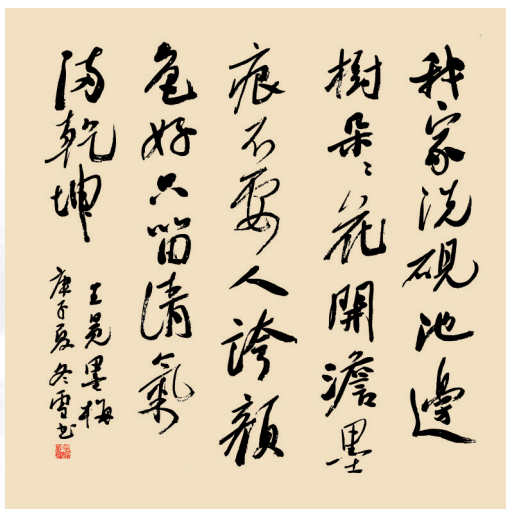 我家洗硯池邊
樹朵々花開澹墨
痕不要人誇顏
色好只留清氣
满乾坤
王冕墨梅
庚子夏冬雪书